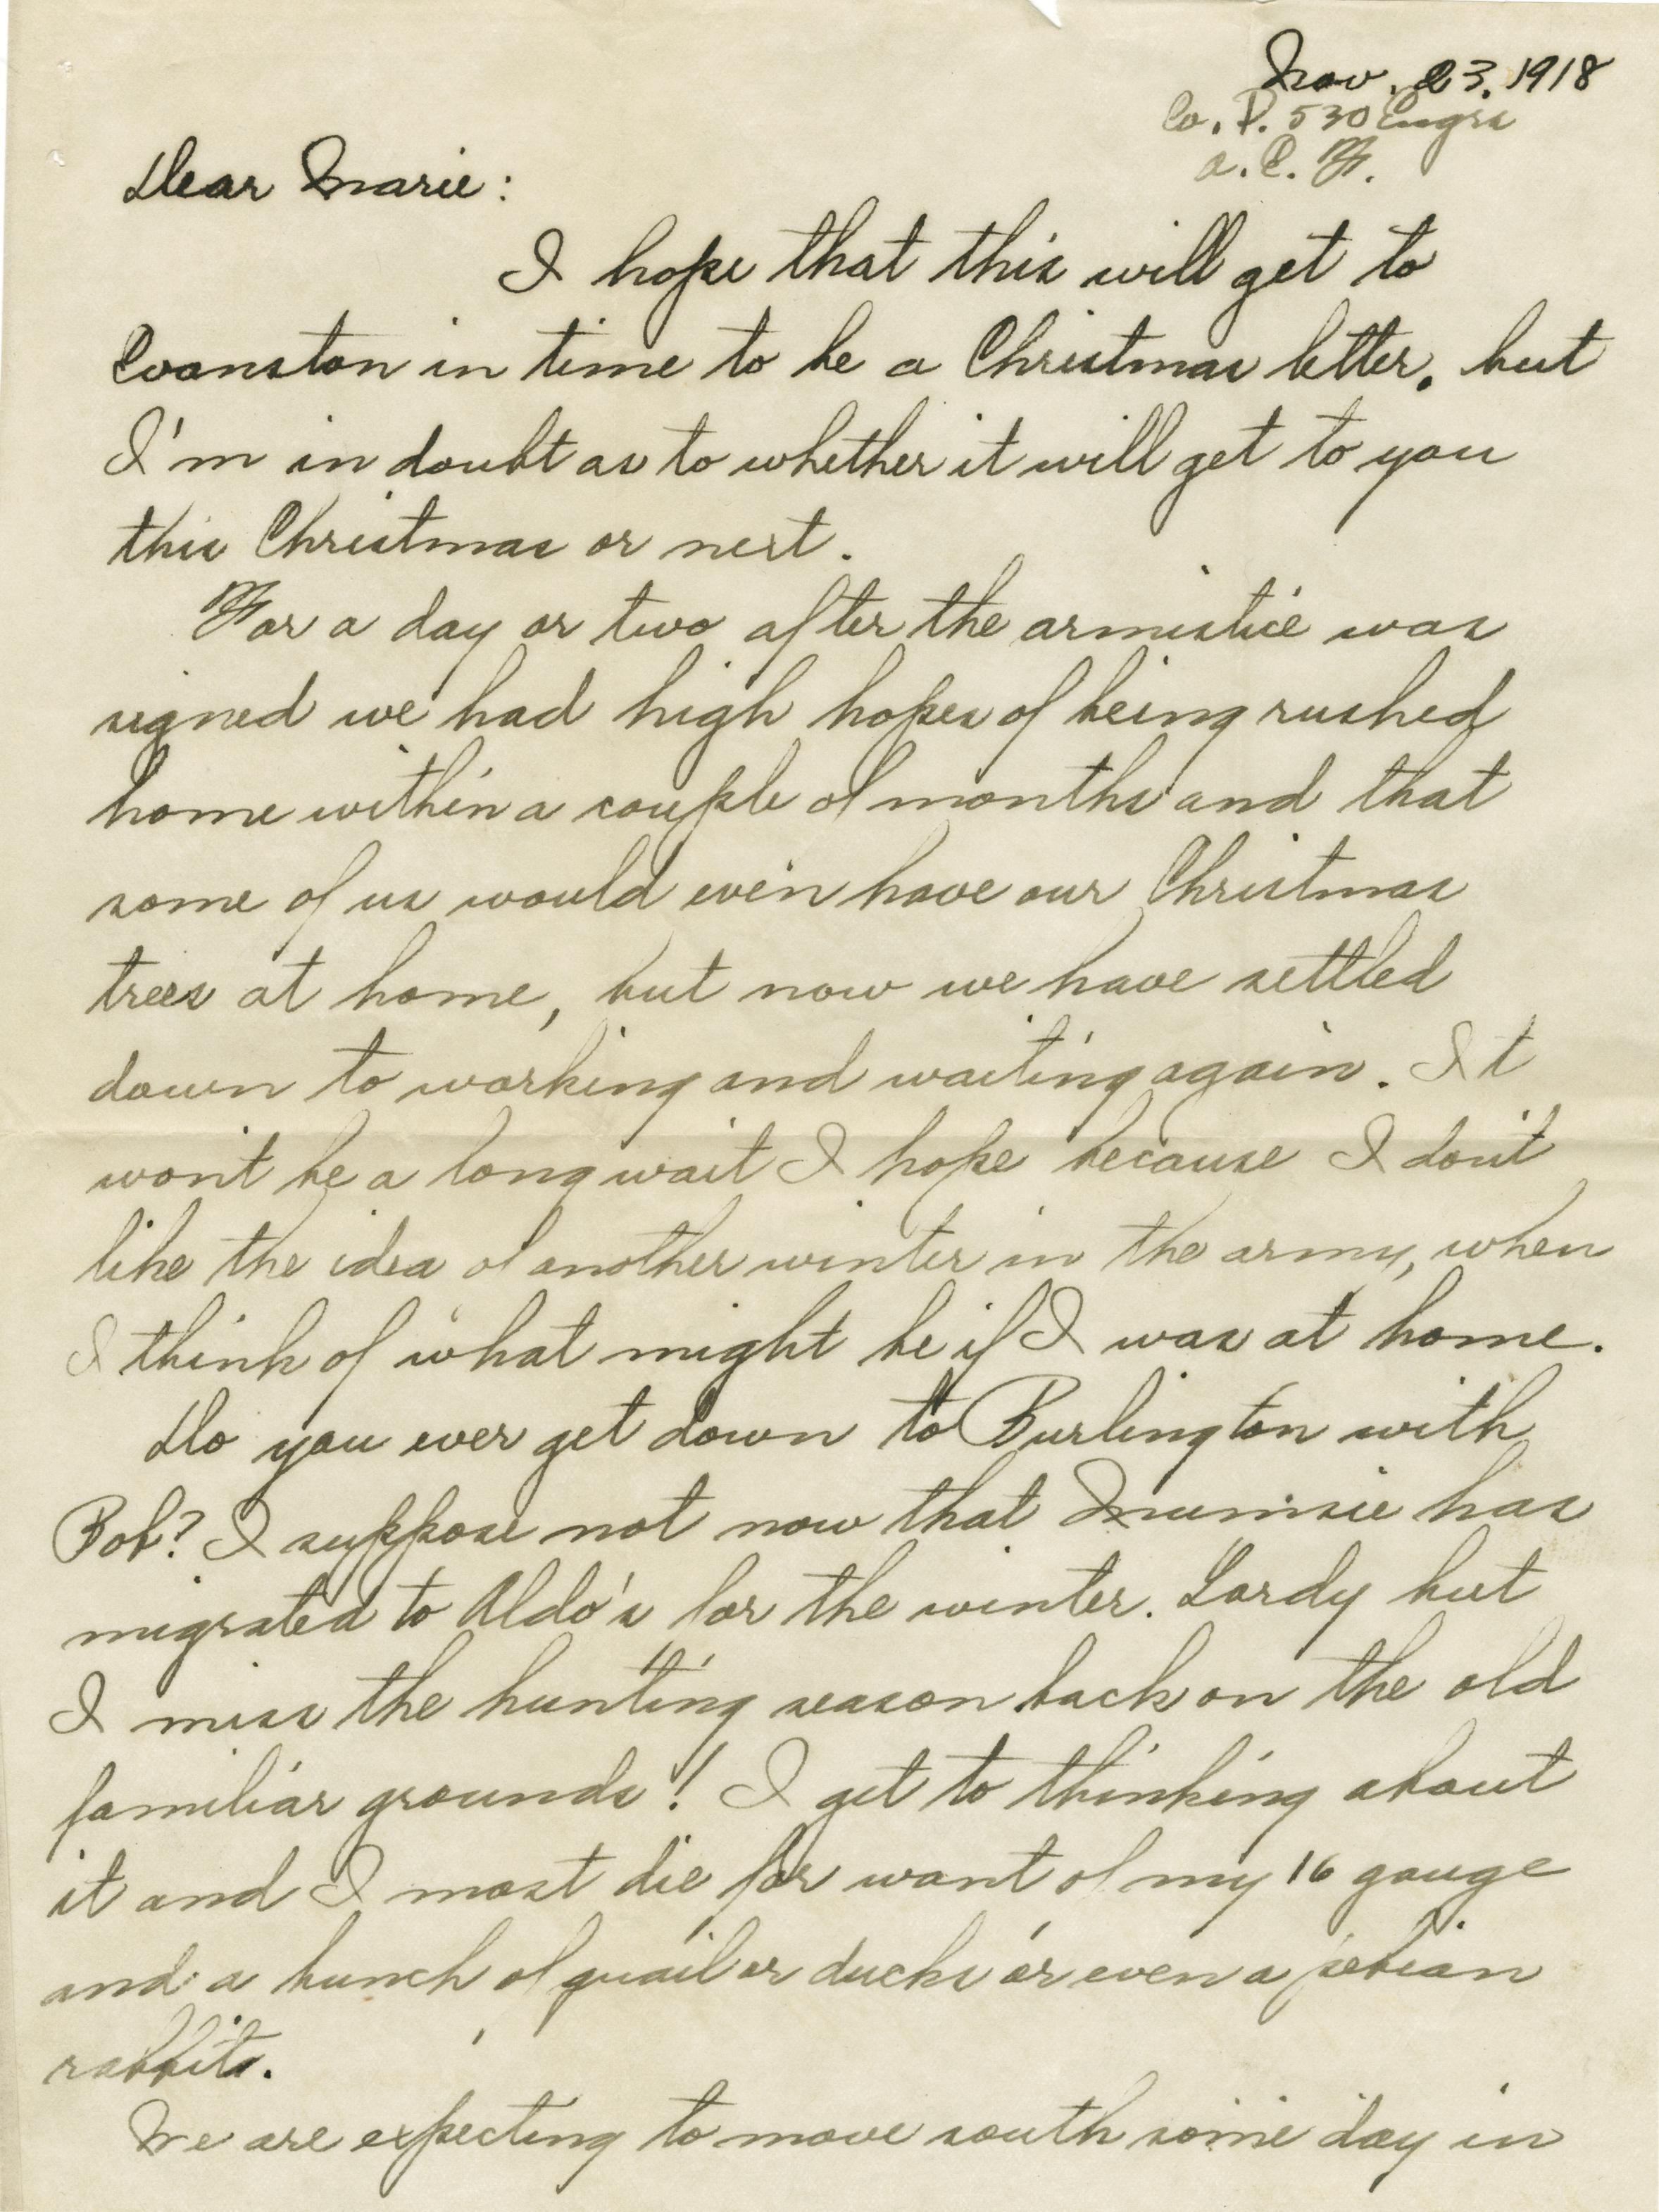 Nov. 23. 1918
Co. D. 530 Engrs
A. E. F.
Dear Marie:
I hope that this will get to
Evanston in time to be a Christmas letter, but
I'm in doubt as to whether it will get to you
this Christmas or next.
For a day or two after the armistice was
signed we had high hopes of being rushed
home within a couple of months and that
some of us would even have our Christmas
trees at home, but now we have settled
down to working and waiting again. It
won't be a long wait I hope because I don't
like the idea of another winter in the army, when
I think of what might be if I was at home.
Do you ever get down to Burlington with
Bob? I suppose not now that Mumsie has
migrated to Aldo's for the winter. Lordy but
I miss the hunting season back on the old
familiar grounds! I get to thinking about
it and I most die for want of my 16 gauge
and a bunch of quail or ducks or even a
rabbits.
We are expecting to move south some day in